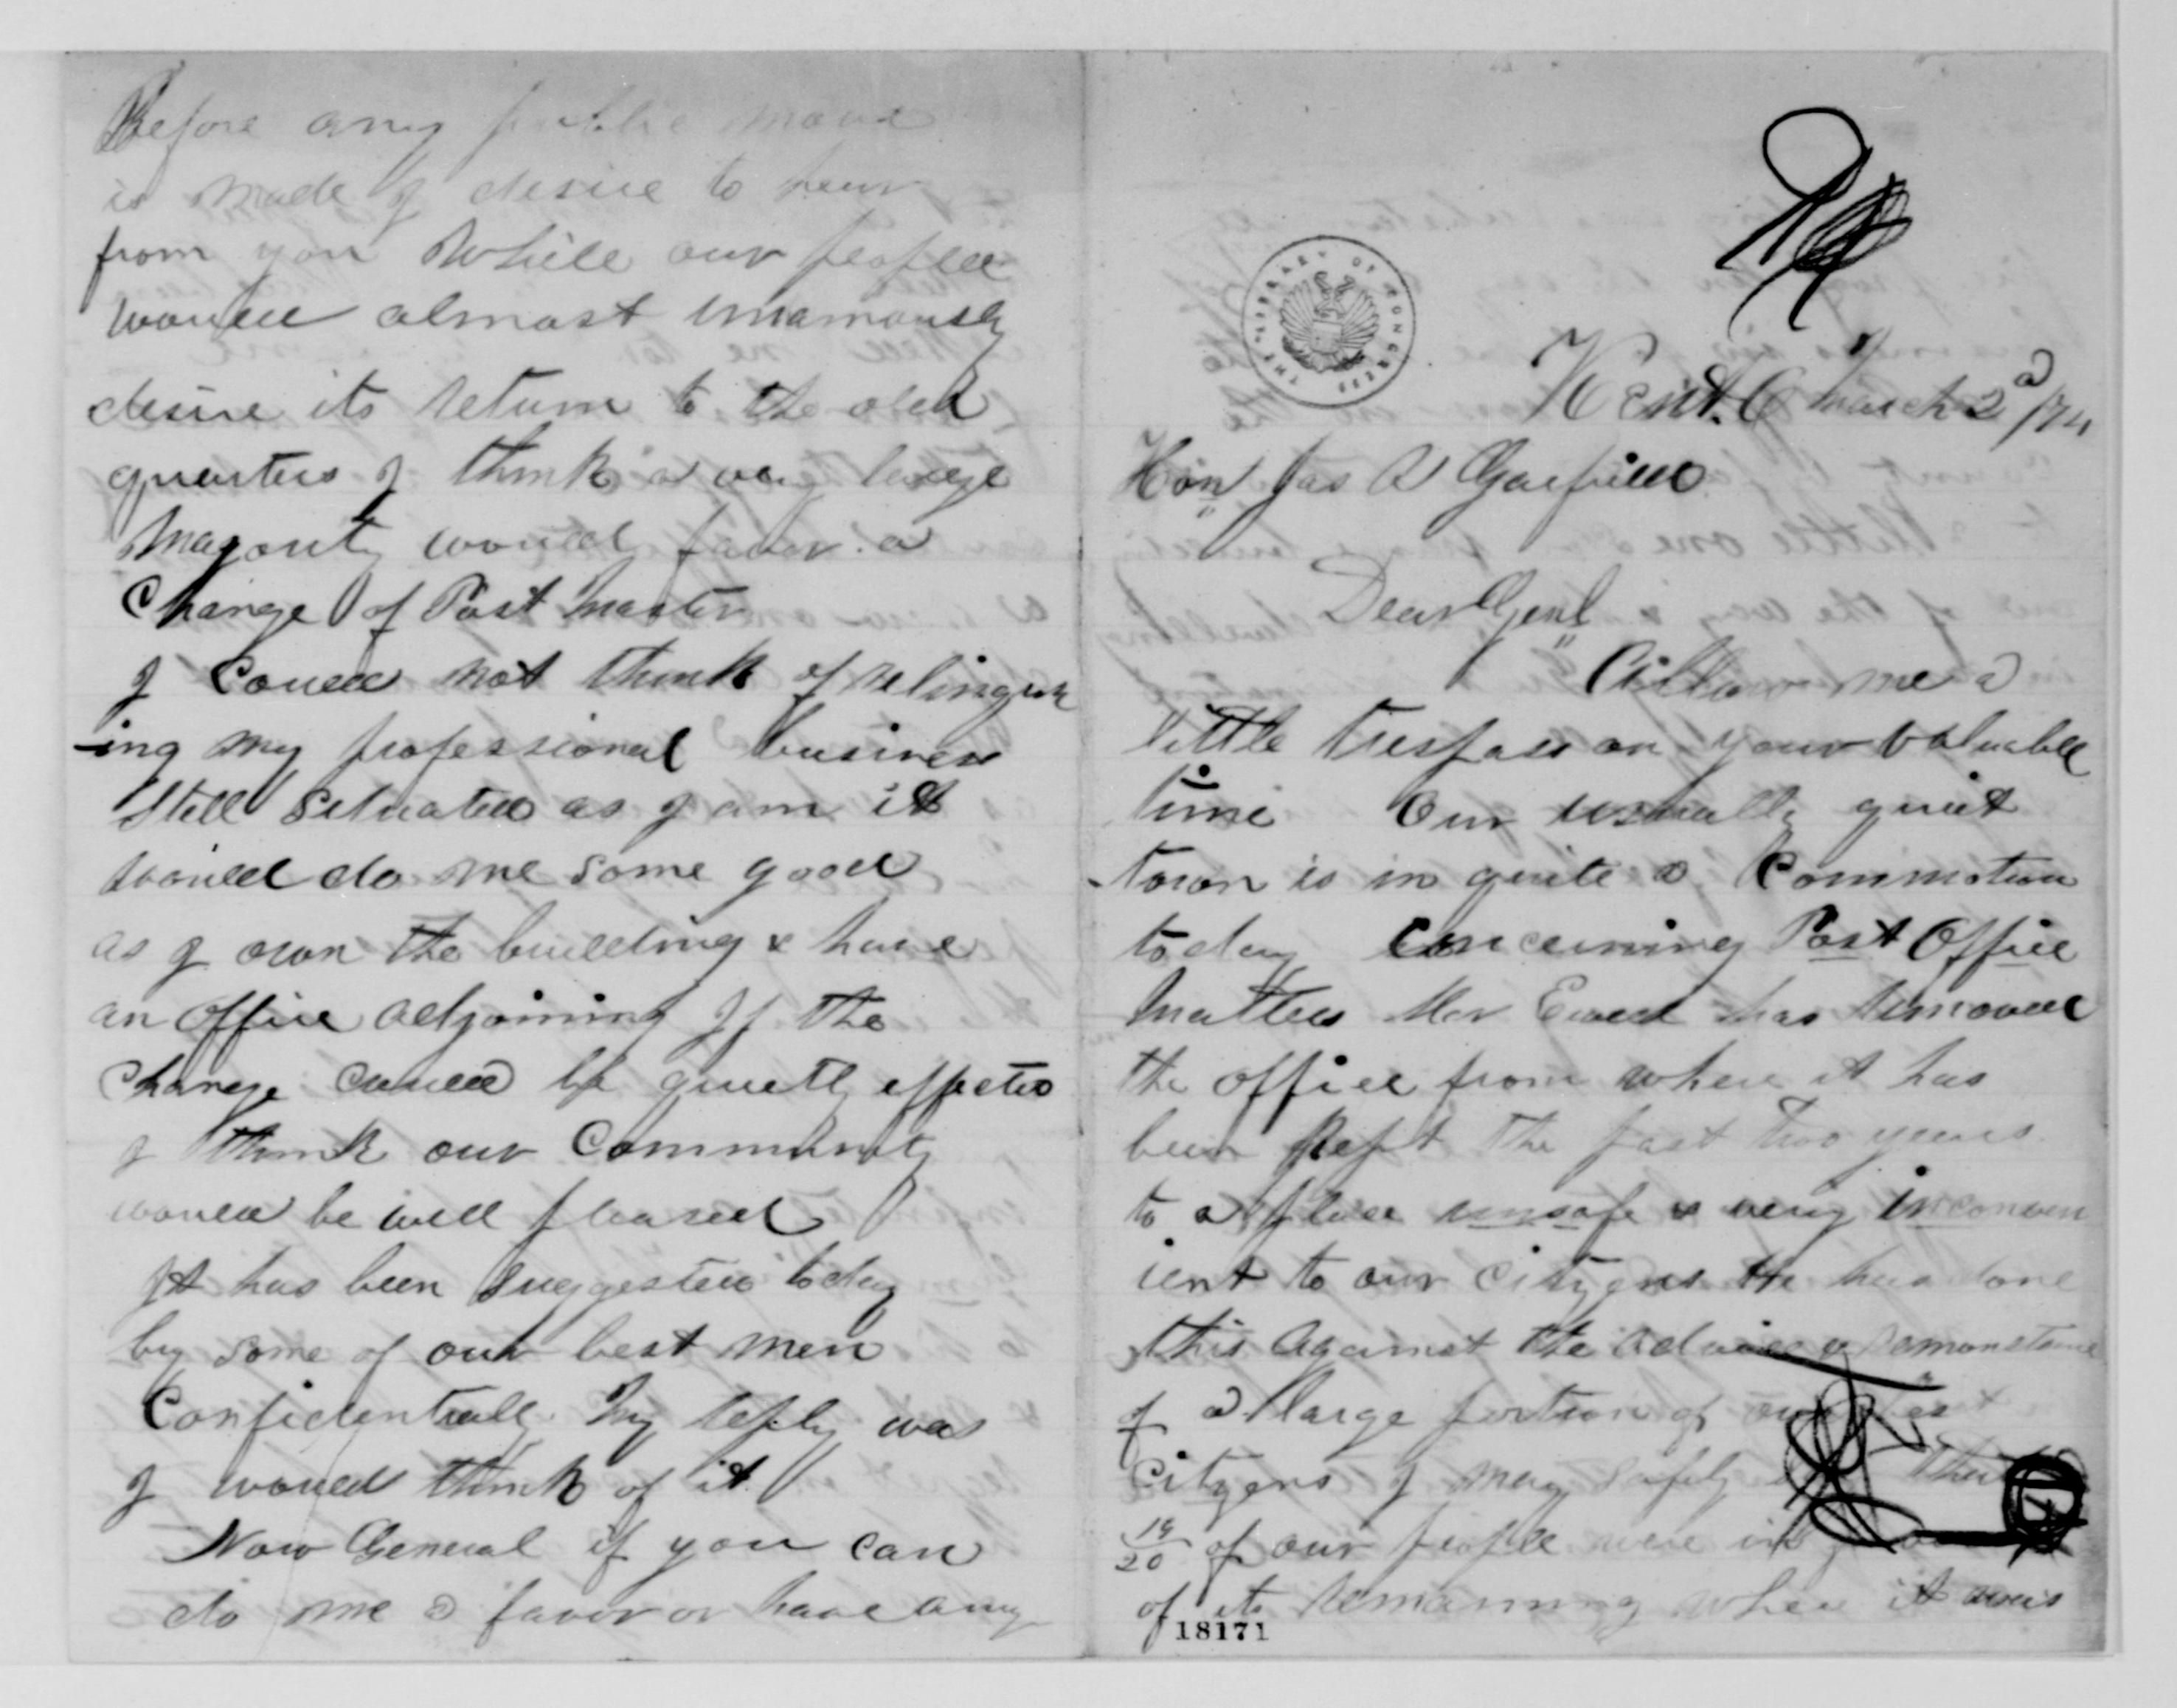 Before any public move
is made I desire to hear
from you While our people
would almost unamously
desire its return to the old
quarters I think a very large
Majority would favor a
Change of Post Master
I Could not think of relinquish
-ing my professional business
Still Situated as I am it
would do me some good
as I own the building & have
an office adjoining If the
Change could be quietly effected
I think our Community
would be well pleased
It has been suggested today
by some of our best men
Confidentially My reply was
I would think of it
Now General if you can
do me a favor or have any
THE LIBRARY OF CONGRESS
Kent O March 2d /74
Hon Jas A Garfield
Dear Genl
Allow me a
little trespass on your valuable
time Our usually quiet
town is in quite a Commotion
today Concerning Post Office
Matters Mr Ewell has removed
the office from where it has
been kept the past two years
to a place unsafe & very inconven
ient to our Citizens He has done
this against the advice & remonstrance
of a large portion of our best
Citizens I may safely that
19/20 of our people were in
of its remaining where it was
18171